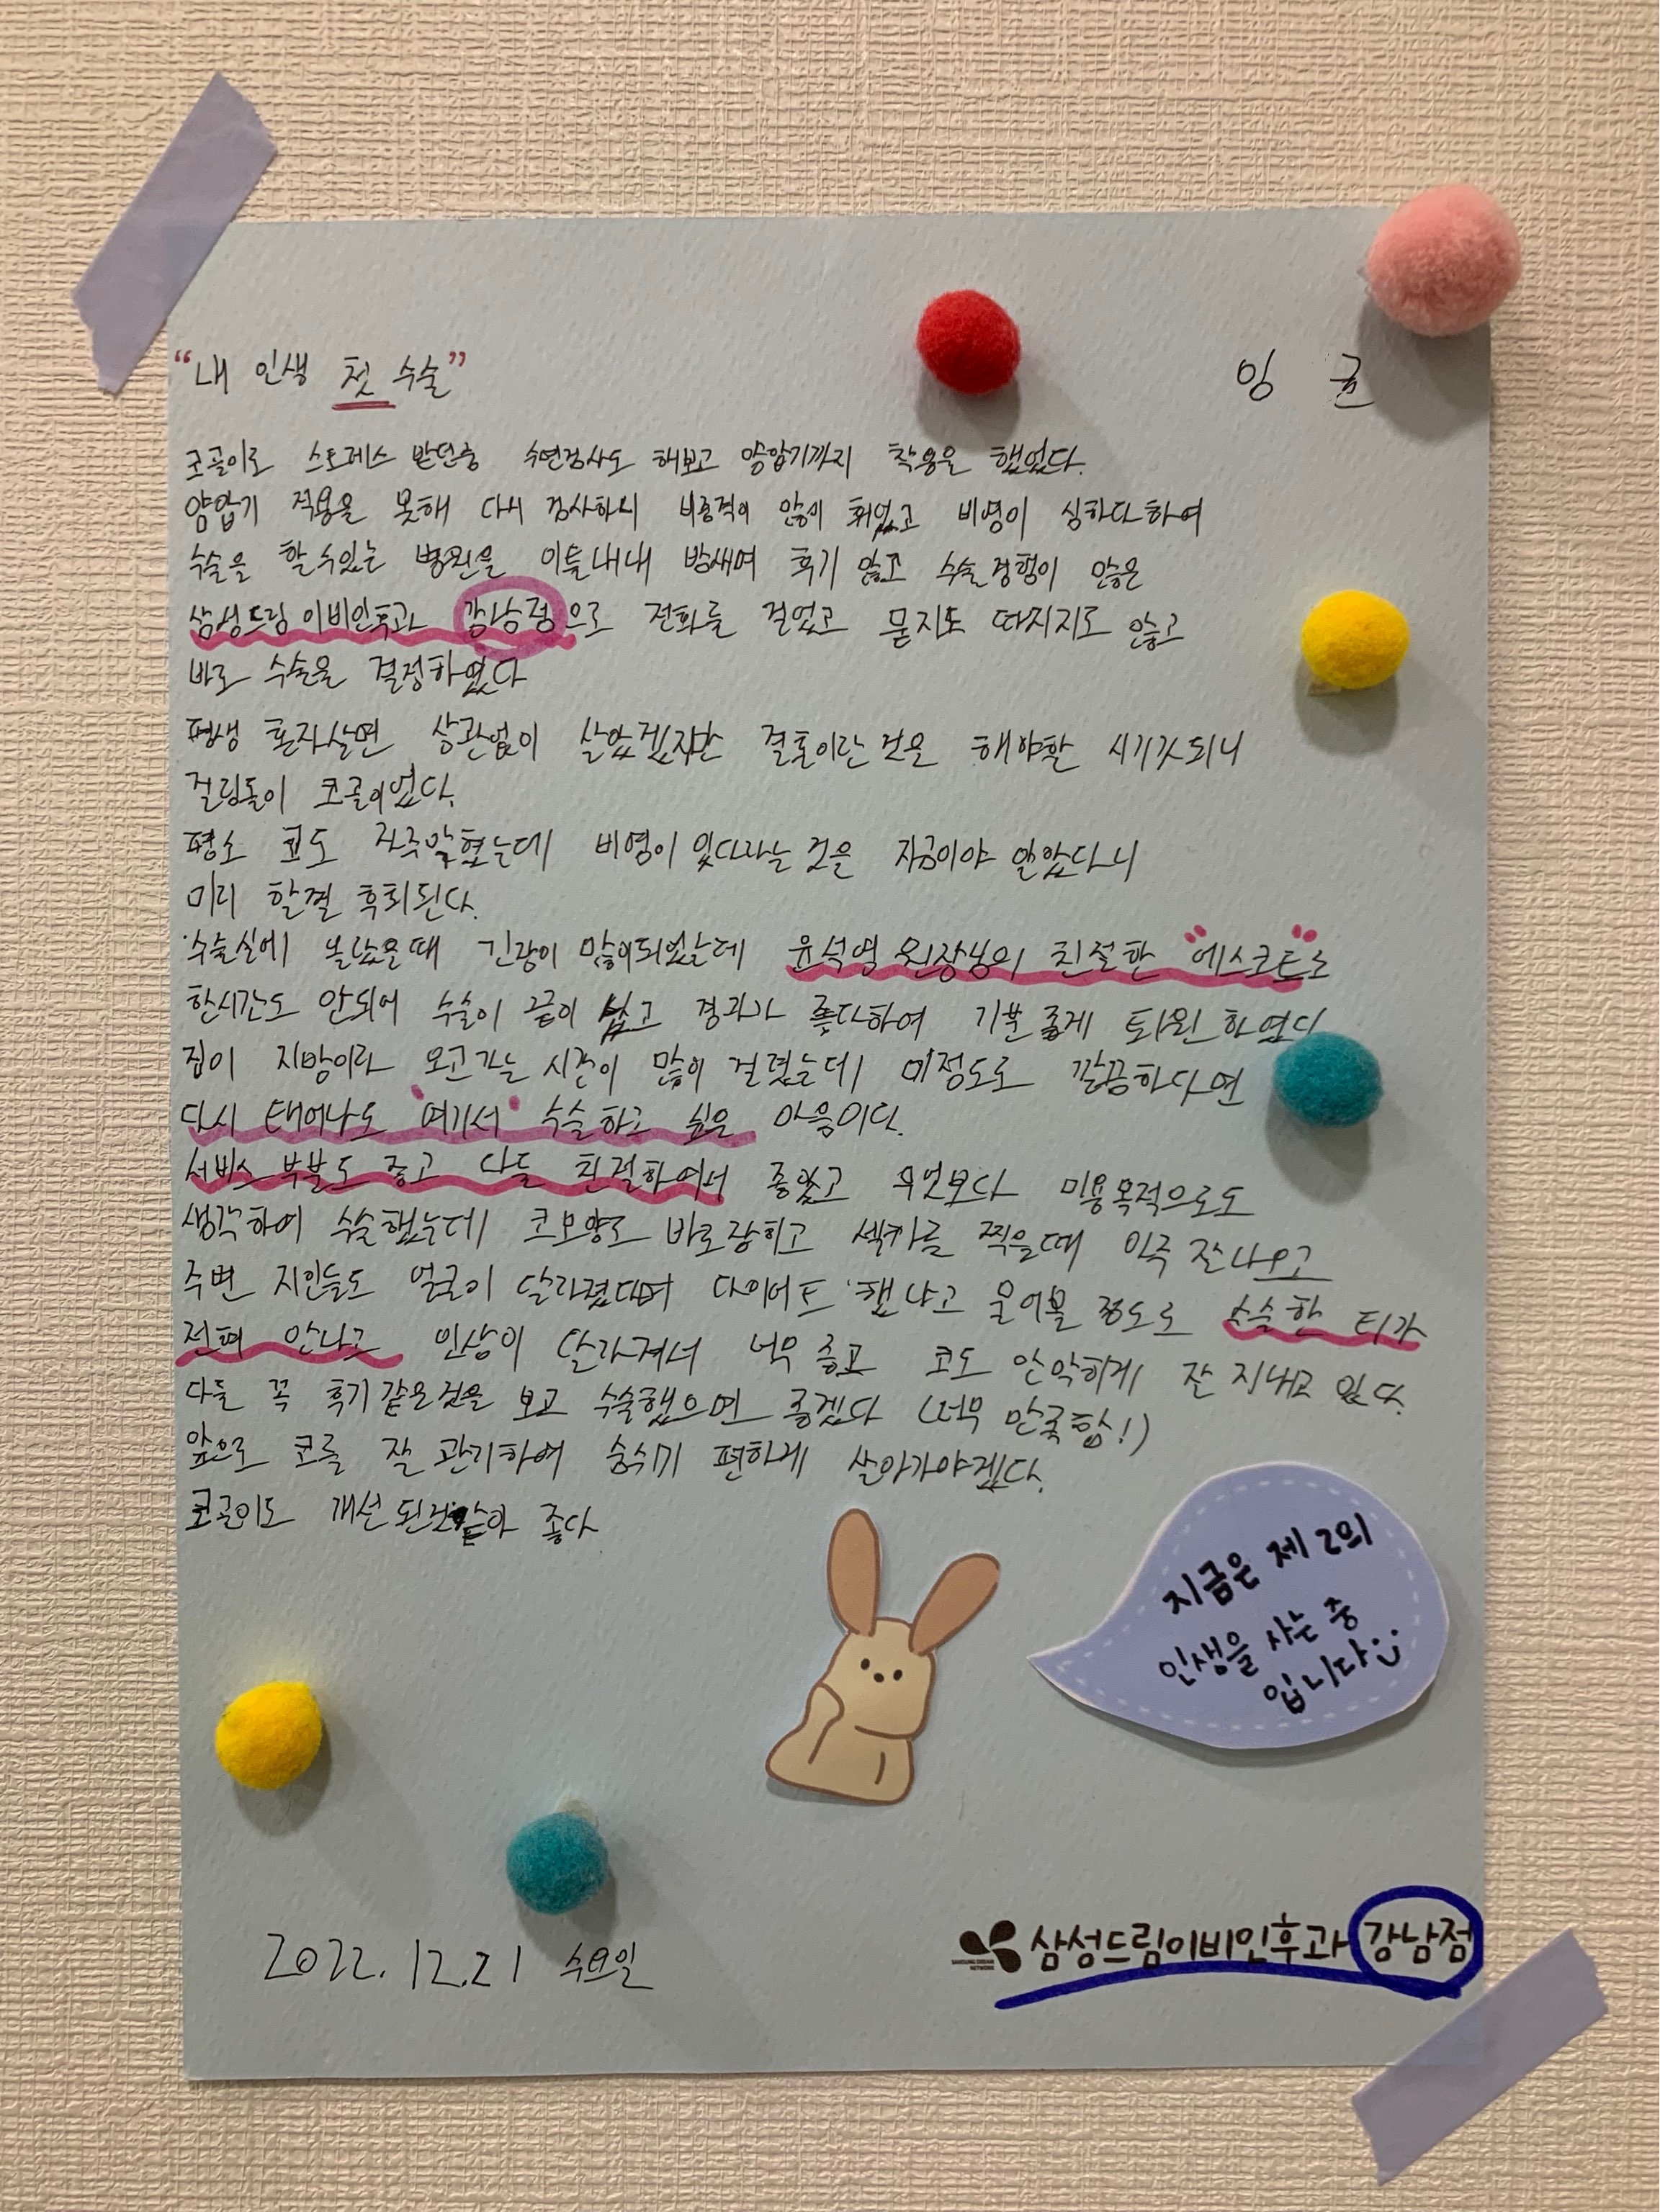 "내 인생 첫 수술"
코골이로 스트레스 받던중 수면검사도 해보고 양압기까지 착용을 했었다.
양압기 적용을 못해 다시 검사하니 비중격이 많이 휘었고 비염이 심하다하여
수술을 할수있는 병원을 이틀내내 밤새며 후기 많고 수술경험이 많은
삼성드림이비인후과 강남점으로 전화를 걸었고 묻지도 따지지도 않고
바로 수술을 결정하였다
평생 혼자살면 상관없이 살았겠지만 결혼이란것을 해야할 시기가되니
걸림돌이 코골이었다.
평소 코도 자주막혔는데 비염이 있다라는것을 지금이야 알았다니
미리 할껄 후회된다.
수술실에 놀랐을때 긴장이 많이되었는데 윤석영 원장님의 친절한 "에스코트"로
한시간도 안되어 수술이 끝이 났고 경과가 좋다하여 기분좋게 퇴원하였다
집이 지방이라 오고가는시간이 많이 걸렸는데 이정도로 깔끔하다면
다시 태어나도 '여기서' 수술하고 싶은 마음이다.
서비스 부분도 좋고 다들 친절하여서 좋았고 무엇보다 미용목적으로도
생각하여 수술했는데 코모양도 바로잡히고 셀카를 찍을때 아주 잘나오고
주변 지인들도 얼굴이 달라졌다며 다이어트 했냐고 물어볼 정도로 수술한 티가
전혀 안나고 인상이 달라져서 너무 좋고 코도 안막히게 잘 지내고 있다.
다들 꼭 후기같은것을 보고 수술했으면 좋겠다 (너무 만족함!)
앞으로 코를 잘 관리하여 숨쉬기 편하게 살아가야겠다.
코골이도 개선된것같아 좋다
지금은 제2의
인생을 사는 중
입니다
2022.12.21 수요일
삼성드림이비인후과 강남점